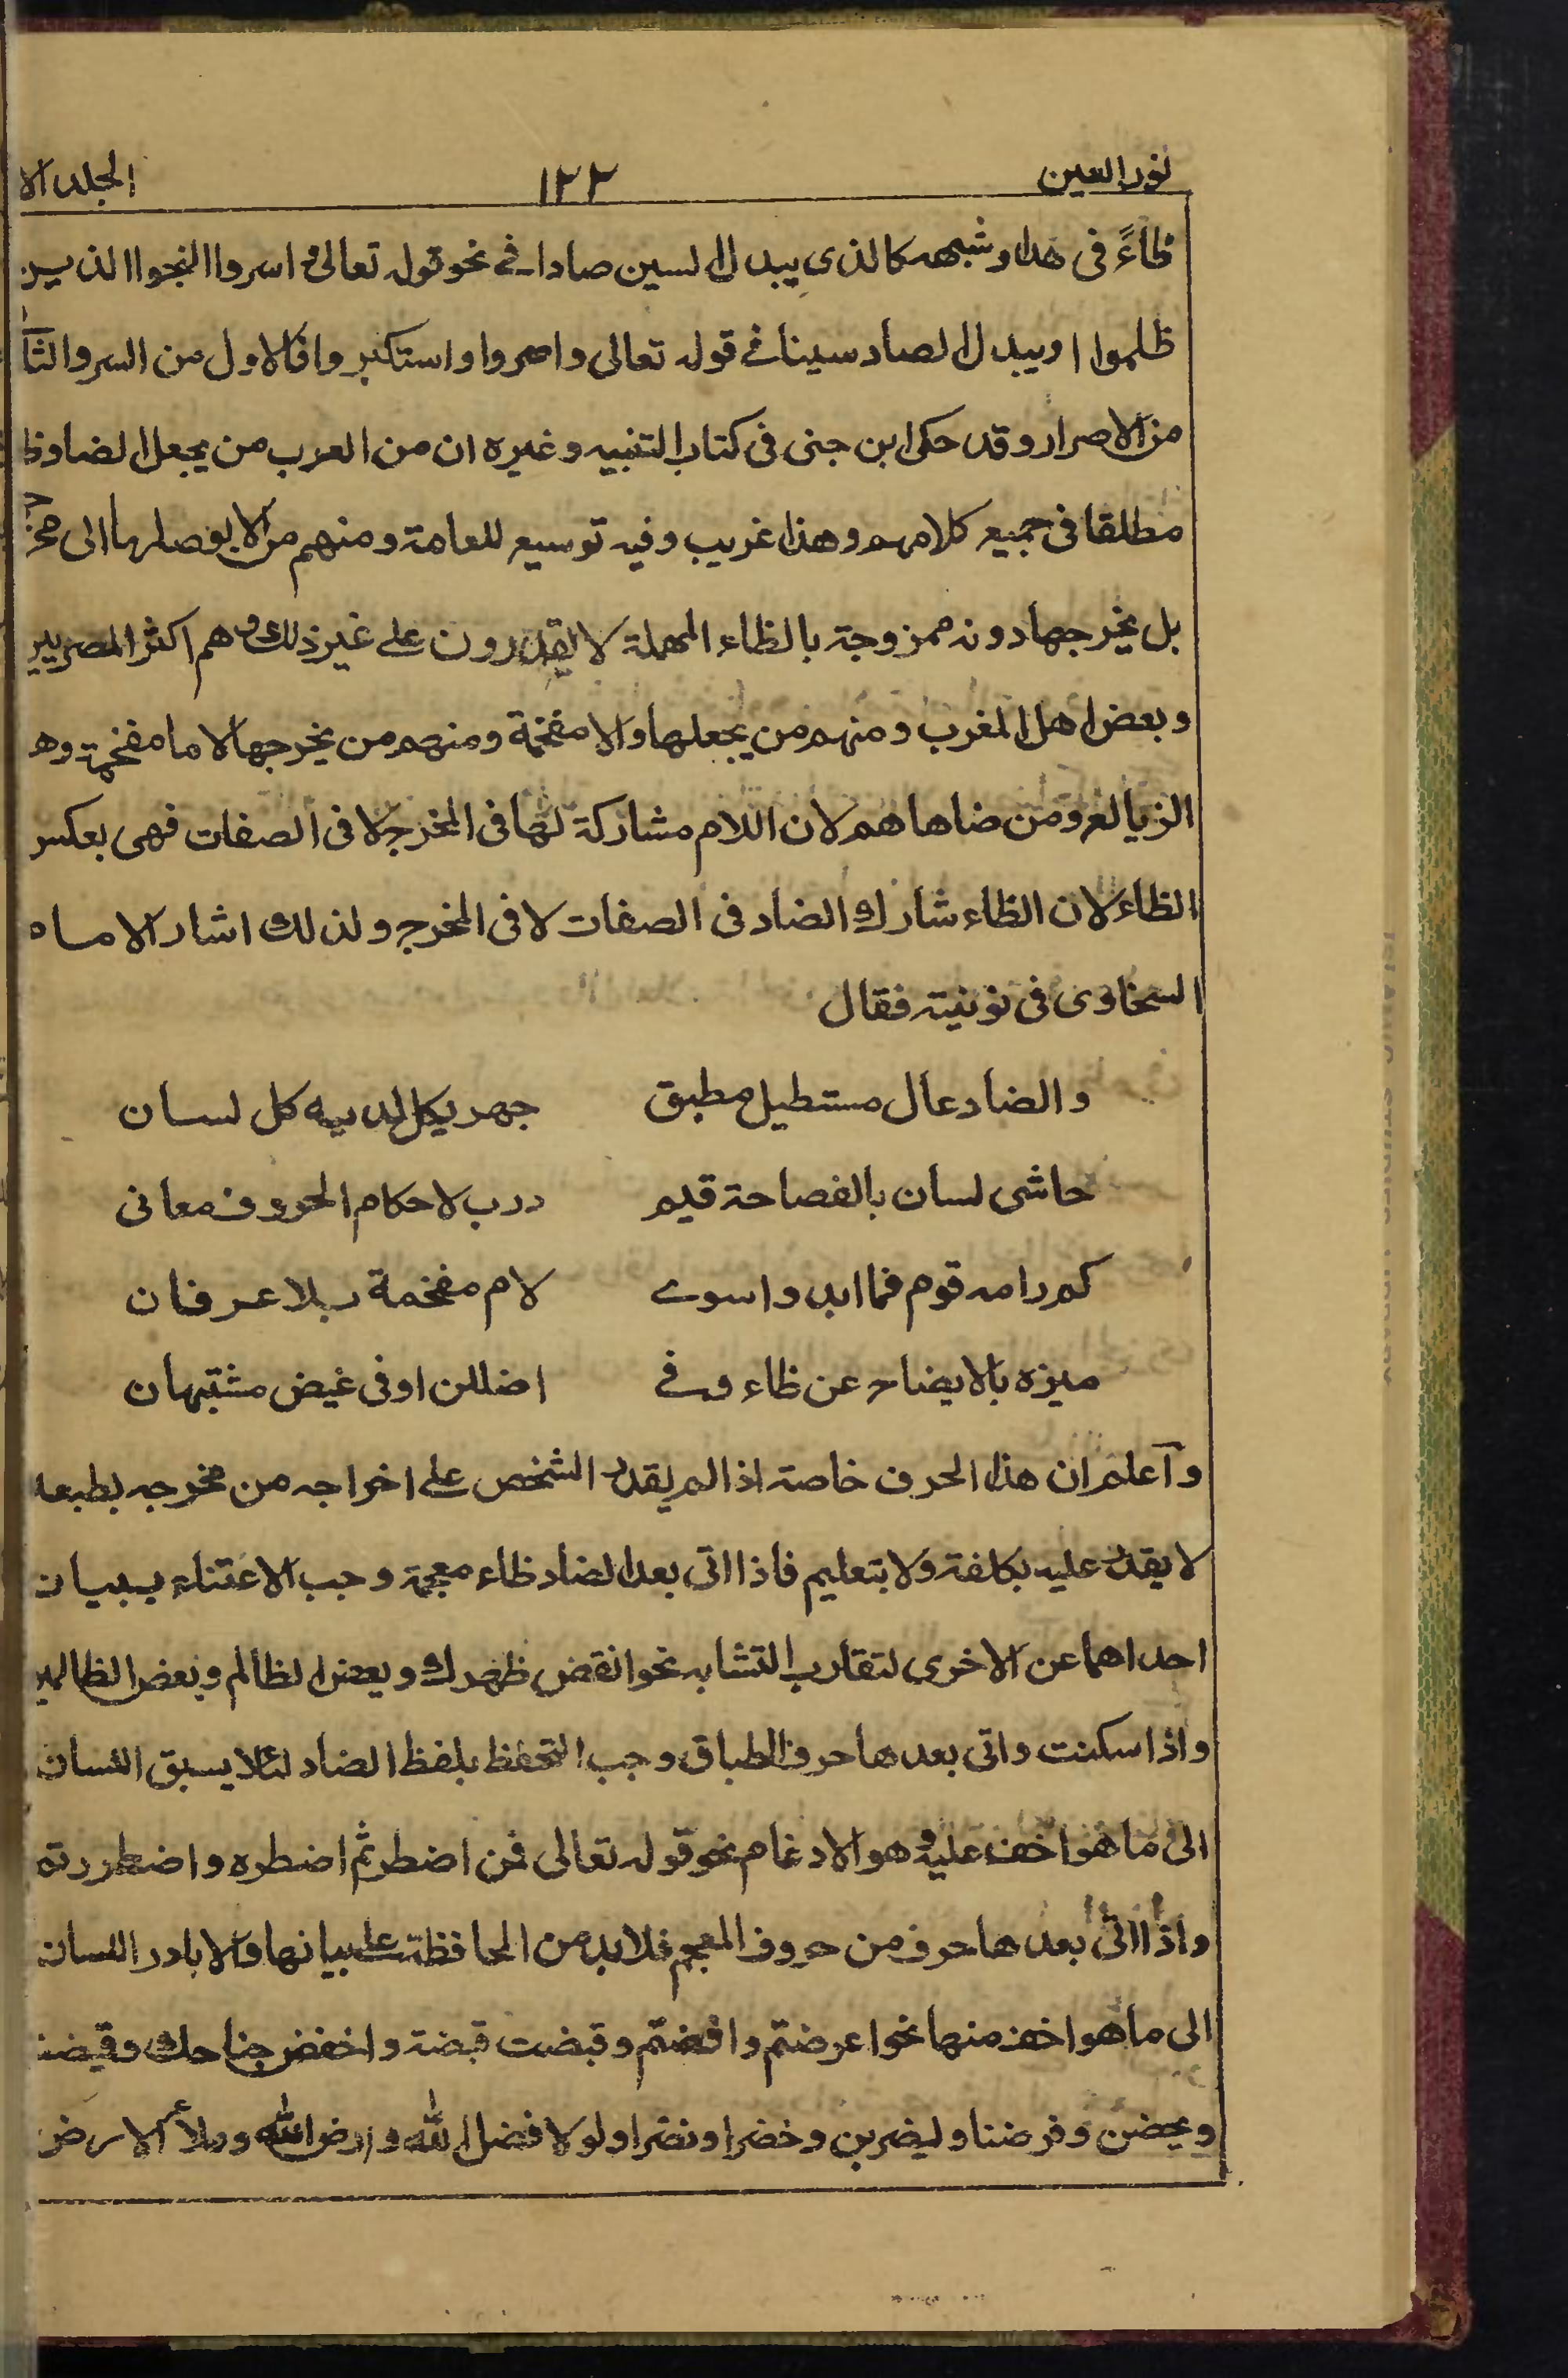 نور العين ١٢٢ الجلد الا
ظاءً فى هذا وشبهه كالذى يبدل السين صادا فے نحو قوله تعالى و اسروا النجوا الذين
ظلموا او يبدل الصاد سينا فے قوله تعالى واصروا واستكبروا فالاول من السر والثا
من الاصرار وقد حكى ابن جنى فى كتاب التنبيه وغيره ان من العرب من يجعل الضاد ظ
مطلقا فى جميع كلامهم وهذا غريب وفيه توسيع للعامة ومنهم من لا يوصلها الى مخر
بل يخرجها دونه ممزوجة بالظاء المهملة لا يقدرون على غير ذلك وهم اكثر المصريين
وبعض اهل المغرب ومنهم من يجعلها والا مفخمة ومنهم من يخرجها لاما مفخمة وهم
الزيالغ ومن ضاهاهم لان اللام مشاركة لها فى المخرج لا فى الصفات فهى بعكس
الظاء لان الظاء شارك الضاد فى الصفات لا فى المخرج ولذلك اشار الامام
السخاوى فى نونيته فقال
والضاد عال مستطيل مطبق جهر يكل لديه كل لسان
حاشى لسان بالفصاحة قيم درب لاحكام الحروف معانى
كم رامه قوم فما ابدوا سوے لام مفخمة بلا عرفان
ميزه بالايضاح عن ظاء وفے اضللن او فى غيض مشتبهان
وآعلم ان هذا الحرف خاصة اذا لم يقدر الشخص على اخراجه من مخرجه بطبعه
لا يقدر عليه بكلفة ولا بتعليم فاذا اتى بعد الضاد ظاء معجمة وجب الاعتناء ببيان
احداهما عن الاخرى لتقارب التشابه نحو انقض ظهرك و يعض الظالم وبعض الظالمين
واذا سكنت واتى بعدها حرف الطباق وجب التحفظ بلفظ الضاد لئلا يسبق اللسان
الى ما هو اخف عليه وهو الادغام نحو قوله تعالى فمن اضطر ثم اضطره واضطررته
واذا اتى بعدها حرف من حروف المعجم فلابد من المحافظة على بيانها والا بادر اللسان
الى ما هو اخف منها نحو اعرضتم وافضتم وقبضت قبضة واخفض جناحك وقيضنا
ويحضن وفرضنا وليضربن وخضرا ونضرا ولولا فضل الله وارض الله وملأ الارض